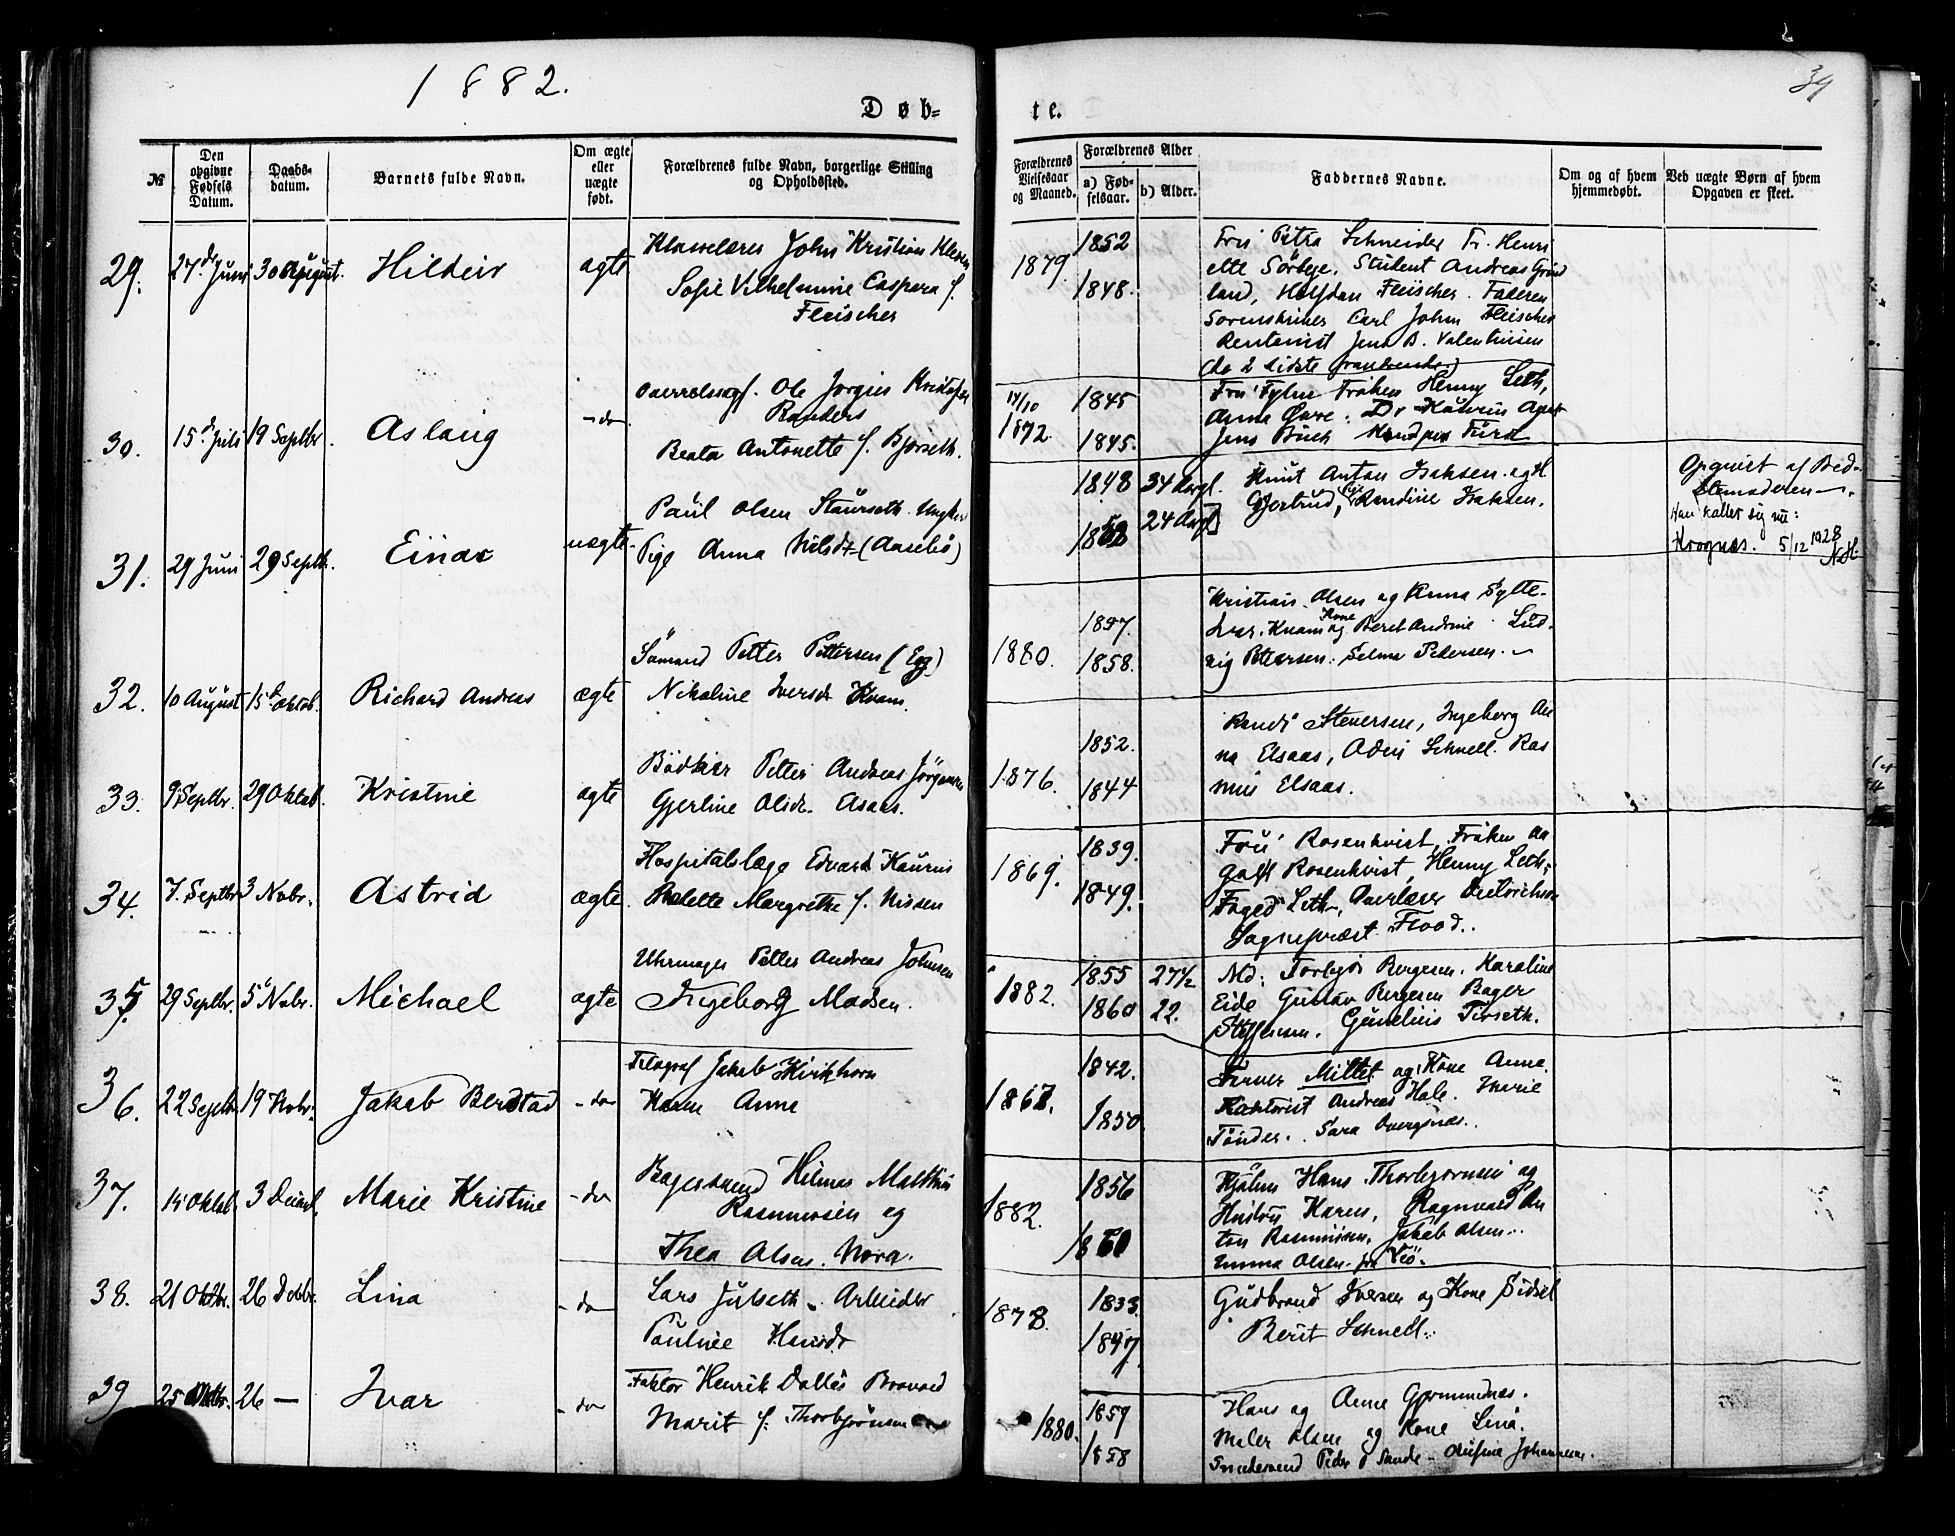 1882.
34
Døb-
te.
№
Den opgivne Fødsels Datum.
Daabs-datum.
Barnets fulde Navn.
Om ægte eller uægte født.
Forældrenes fulde Navn, borgerlige Stilling og Opholdssted.
Forældrenes Vielsesaar og Maaned.
Forældrenes Alder
a) Fødselsaar.
b) Alder.
Faddernes Navne.
Om og af hvem hjemmedøbt.
Ved uægte Børn af hvem Opgaven er skeet.
29. 27 d Juni 30 August. Hildur ægte
John Kristian
Sofie Vilhelmine Caspara f.
Fleischer
1879. 1852
1848.
Fru Petra Schneider Fr. Henri
ette Sörbye. Student Andreas Grönd
land, Halfdan Fleischer. Faderen
Sorenskriver Carl Johan Fleischer
Rentenist Jens B. Valentinsen
(de 2 sidste fraværende)
30. 15 d Juli 19 Septbr. Aslaug - do -
Ole Jørgen Kristofer
Randers
Beata Antonette f. Bjørseth.
14/10 1872. 1845
1845.
Fröken Henny Leth,
Anna Øvre.
Jens Buch
31. 29 Juni 29 Septbr. Einar uægte
Paul Olsen Staurseth. Ungkar
Pige Anna Nilsdt (Aarebö)
1848 34 Aargl.
24 Aargl
Knut Anton Isaksen og H
Gjertrud, Randine Isaksen.
Opgivet af Bed-
stemoderen.
Han kaller sig nu:
Krognes. 5/12 1928
N.H.
32. 10 August 15 d Oktob. Richard Andreas ægte
Sömand Petter Pettersen (Eg)
Nikoline Iversdr Kvam.
1880. 1857.
1858.
Kristian Olsen og Anna Sylte.
Iver Kvam og Kone Beret Andrine. Lud-
vig Petersen. Selma Pedersen.
33. 9 Septbr. 29 Oktob. Kristine ægte
Bödker Petter Andreas Jörgensen
Gjerline Olsdr. Asaas.
1876. 1852.
1844
Randi Stenersen, Ingeborg An
na Elsaas, Schnell. Ras
mus Elsaas.
34. 7. Septbr 3 Novbr. Astrid ægte.
Hospitalslæge Edvard Kaurin
Margrethe f. Nissen
1869. 1839.
1849.
Fru Rosenkvist, Fröken Aa
got Rosenkvist, Henny Leth,
Foged Leth, Overlærer Dietrichson
Sognepræst Flood.
35. 29 Septbr. 5 d Novbr. Michael ægte
Uhrmager Petter Andreas Johnsen
Ingeborg Madsen.
1882. 1855 27 1/2
1860 22.
Md: Torbjør Bergesen. Karoline
Eide Gustav Bergesen Bager
Steffensen. Gunelius Tirseth.
36. 22 Septbr 19 Novbr. Jakob Berdstad - do -
Telegraf Jakob Kirkhorn
Kone Anne
1867. 1842.
1850
Farver Mittet og Kone Anne.
Kontorist Andreas Hole. Marie
Tönder. Sara Overgnæs.
37. 14 Oktob. 3 Decemb. Marie Kristine - do
Bagersvend Hilmar Matthias
Rasmussen og
Thea Olsen. Nora.
1882. 1856
1860
Hjalm Hans Thorbjørnsen og
Hustru Karen, Ragnvald An
ton Rasmussen, Jakob Olsen.
Emma Olsen fra Veö.
38. 21 Oktbr. 26 Decbr. Lina - do
Lars Julseth. Arbeider
Pauline Hansdr
1878. 1833.
1847.
Gudbrand Iversen og Kone Sidsel
Berit Schnell.
39 25 Oktbr. 26 — Ivar - do
Faktor Henrik Dallas Brovold
Marit f. Thorbjørnsen
1880. 1859
1858
Hans og Anne Gjermundnæs.
Maler Olsen og Kone Lina.
Smedsvend Peder Sande. Johannesen.